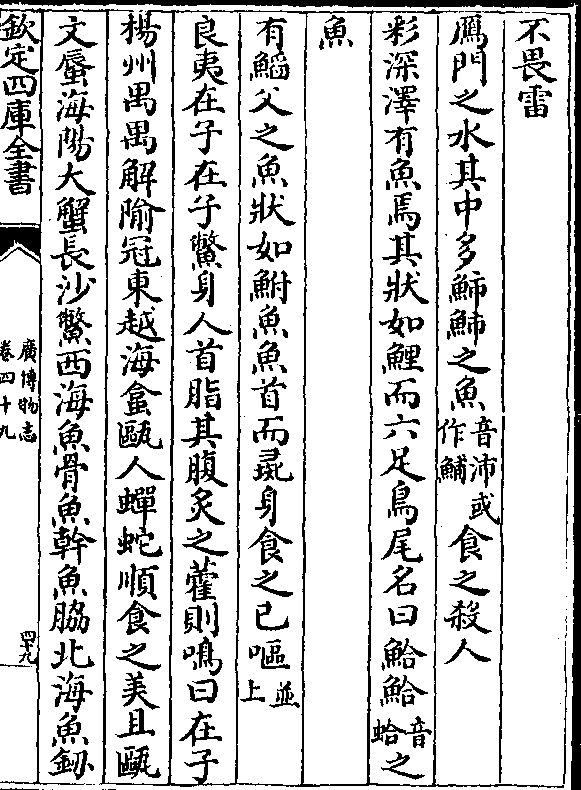 不畏雷
鴈門之水其中多䰽䰽之魚音沛或作鯆食之殺人
彩深澤有魚焉其狀如鯉而六足鳥尾名曰鮯鮯音蛤之
魚
有䱤父之魚狀如鮒魚魚首而彘身食之已嘔並上
良夷在子在子鱉身人首脂其腹炙之藿則鳴曰在子
楊州禺禺解隃冠東越海蛤甌人蟬蛇順食之美且甌
文蜃海陽大蟹長沙鱉西海魚骨魚幹魚脇北海魚劒
欽定四庫全書
廣博物志
卷四十九
四十九